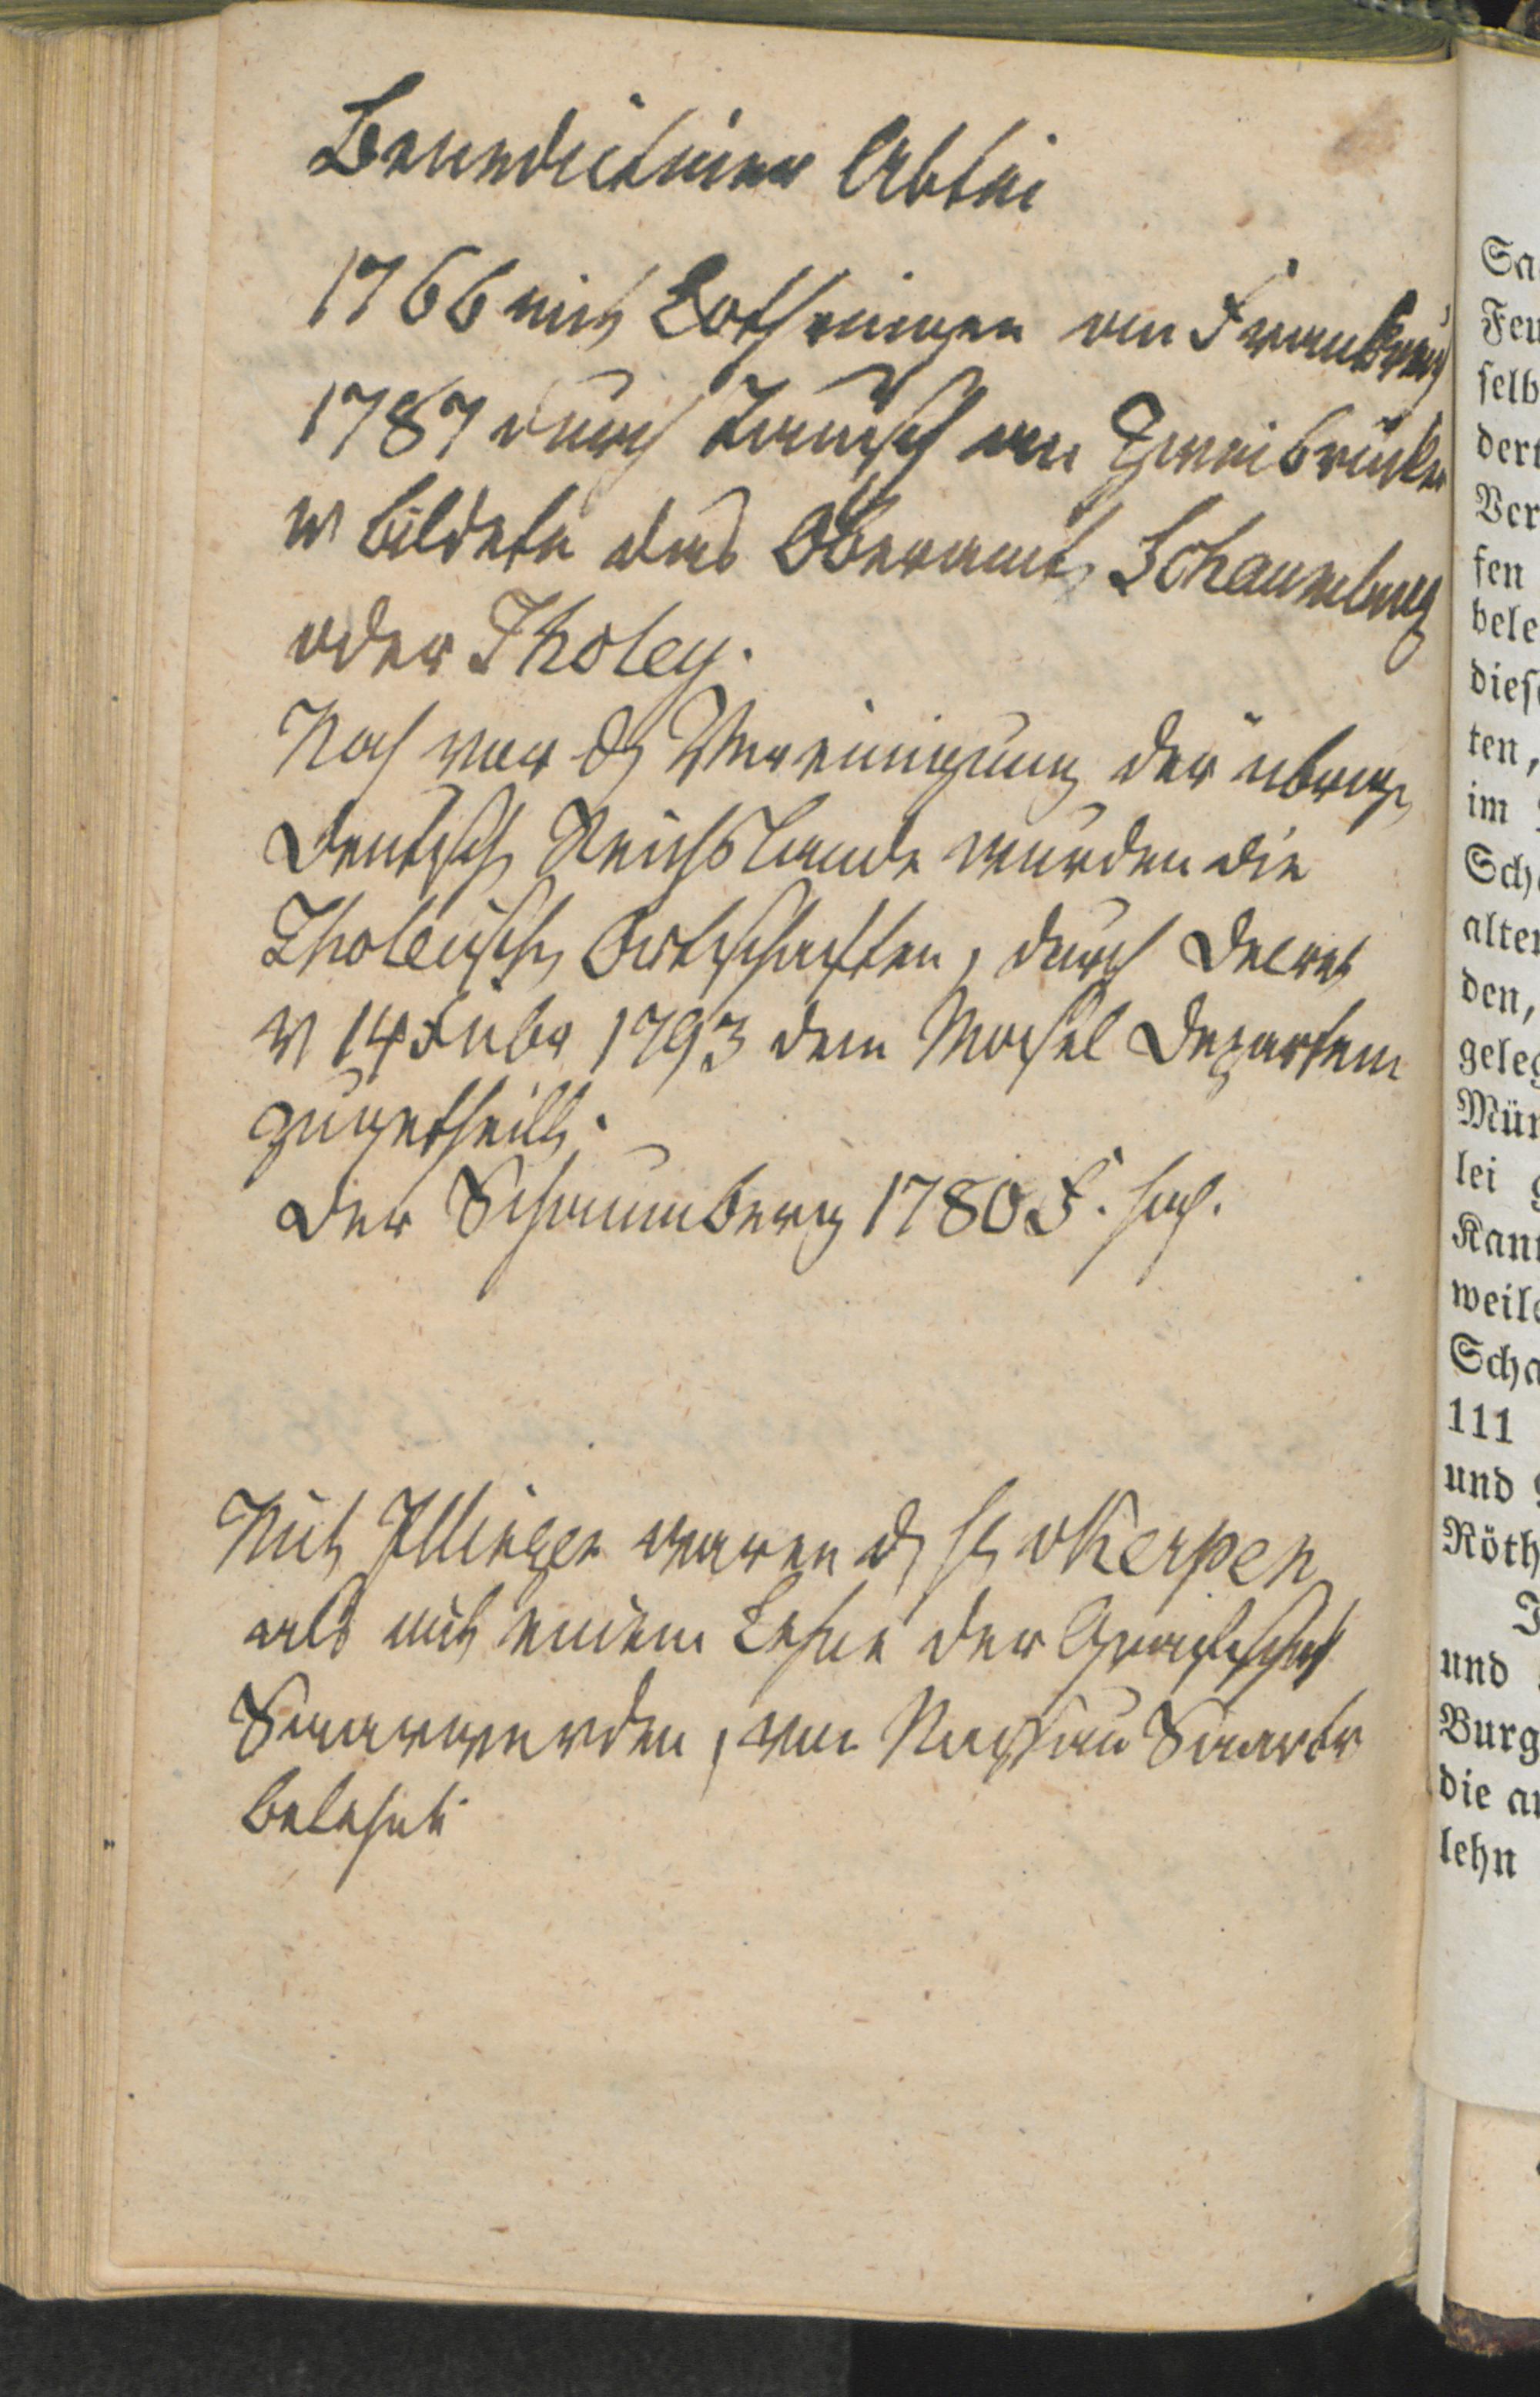 Benedictiner Abtei
1766 mit Lothringen an Frankreich
1787 durch Tausch an Zweibrücken
u bildete das Oberamt Schaumburg
oder Tholey.
Noch vor der Vereinigung der übrigen
deutschen Reichslande wurden die
Tholeyischen Ortschaften, durch Decret
v 14 Febr 1793 dem Mosel Departem
zugetheilt.
Der Schaumberg 1780 F. hoch.
Mit Illingen waren die v Kerpen
als mit einem Lehne der Grafschaft
Saarwerden, von Nassau Saarbr
belehnt
Sa
Feu
selb
dert
Ver
fen
bele
dies
ten,
im
Sch
alten
den,
geleg
Mün
lei g
Kan
weile
Scha
111
und g
Röth
I
und
Burg
die a
lehn